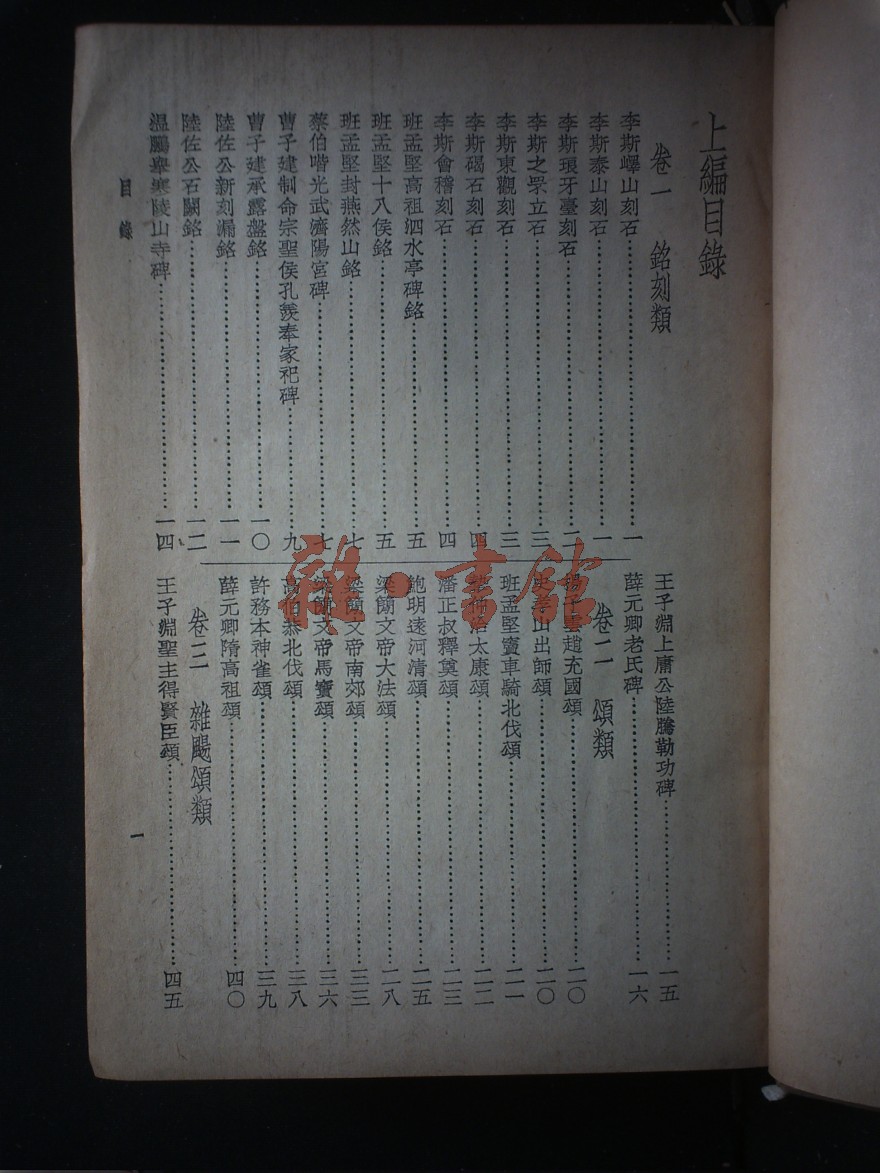 上編目錄
卷一 銘刻類
李斯嶧山刻石……一
李斯泰山刻石……一
李斯琅牙臺刻石……二
李斯之罘立石……三
李斯東觀刻石……三
李斯碣石刻石……四
李斯會稽刻石……四
班孟堅高祖泗水亭碑銘……五
班孟堅十八侯銘……五
班孟堅封燕然山銘……七
蔡伯喈光武濟陽宮碑……七
曹子建制命宗聖侯孔羨奉家祀碑……九
曹子建承露盤銘……一〇
陸佐公新刻漏銘……一一
陸佐公石闕銘……一二
溫鵬舉寒陵山寺碑……一四
王子淵上庸公陸騰勒功碑……一五
薛元卿老氏碑……一六
卷二 頌類
揚子雲趙充國頌……二〇
史孝山出師頌……二〇
班孟堅竇車騎北伐頌……二一
摯仲洽太康頌……二二
潘正叔釋奠頌……二三
鮑明遠河清頌……二五
梁簡文帝大法頌……二八
梁簡文帝南郊頌……三三
梁簡文帝馬寶頌……三六
高伯恭北伐頌……三八
許務本神雀頌……三九
薛元卿隋高祖頌……四〇
卷三 雜颺頌類
王子淵聖主得賢臣頌……四五
目錄
一
雒·書館